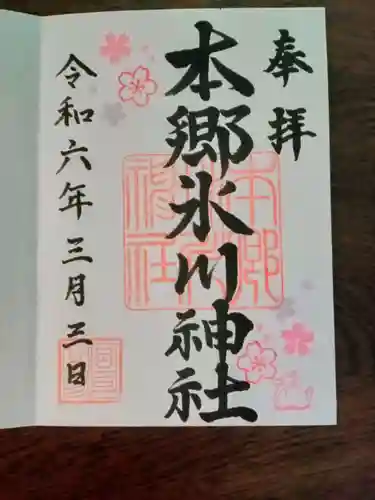 奉拝
本郷氷川神社
令和六年三月三日
本郷氷川神社